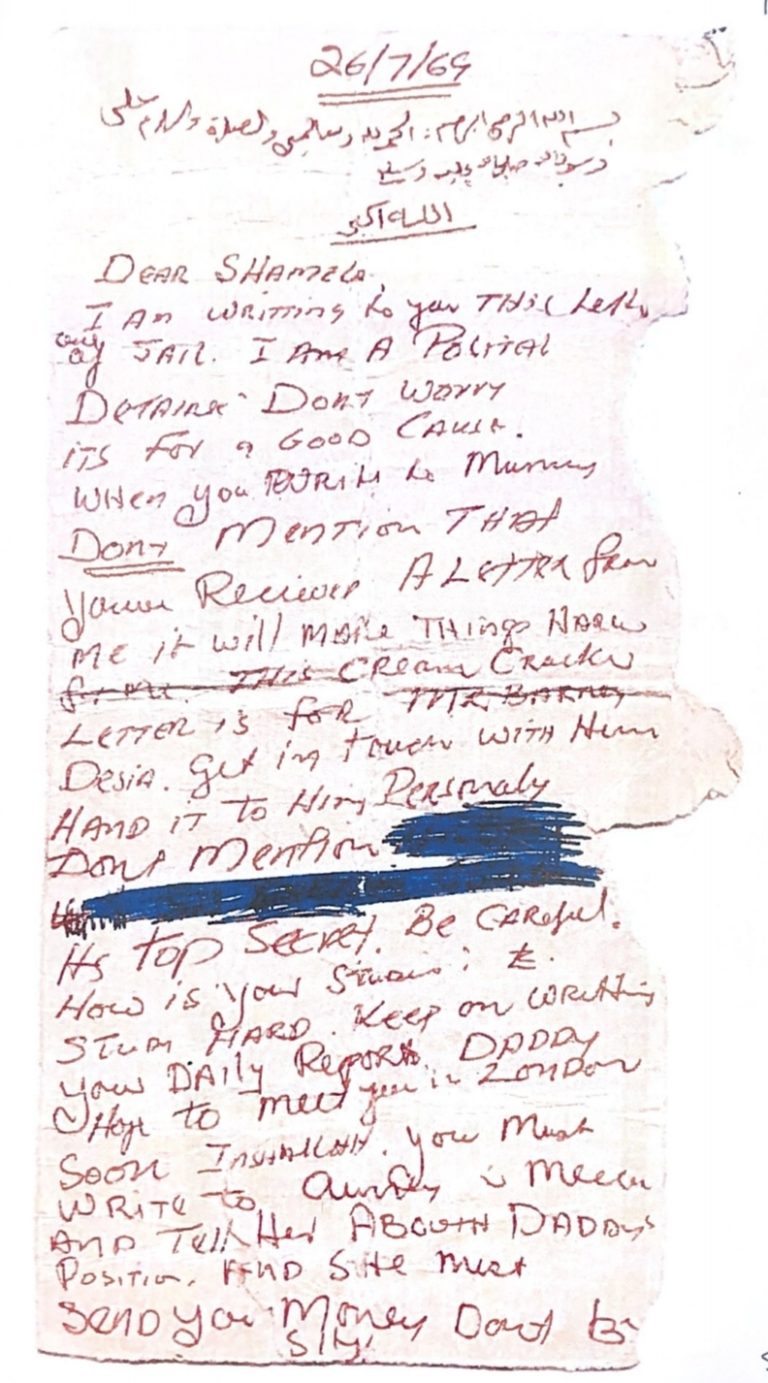 26/7/69
بسم الله الرحمن الرحيم. الحمد لله رب العالمين والصلاة والسلام على
رسول الله صلى الله عليه وسلم
الله اكبر
DEAR SHAMELA.
I Am writting to you THIS Letter
out of JAIL. I Am A Polital
DETAINE. DONT worry
iTS FoR a GOOD CAUSE.
WHen you WRITE to Mummy
DONT MenTion THAt
Youve Reciever A LETTER from
me it will MAKE THings HARD
for me. THIS CREAM Cracker
LETTER is foR MR. BARNEY
Desia. Get in Touch WITH Him
HAND iT To Him Personaly
Dont Mention
Its Top SecRet. Be CAReful.
How is your STUDIES:
STUDY HARD. Keep on WRitting
your DAily RepoRt. DADDY
Hope to meet you in LONDON
Soon InSHALLAH. you Must
WRITE to Auntey in Mecca
AND Tell Her ABOUTH DADDYS
Position. AND SHe must
SenD you Money Dont be
SHY.